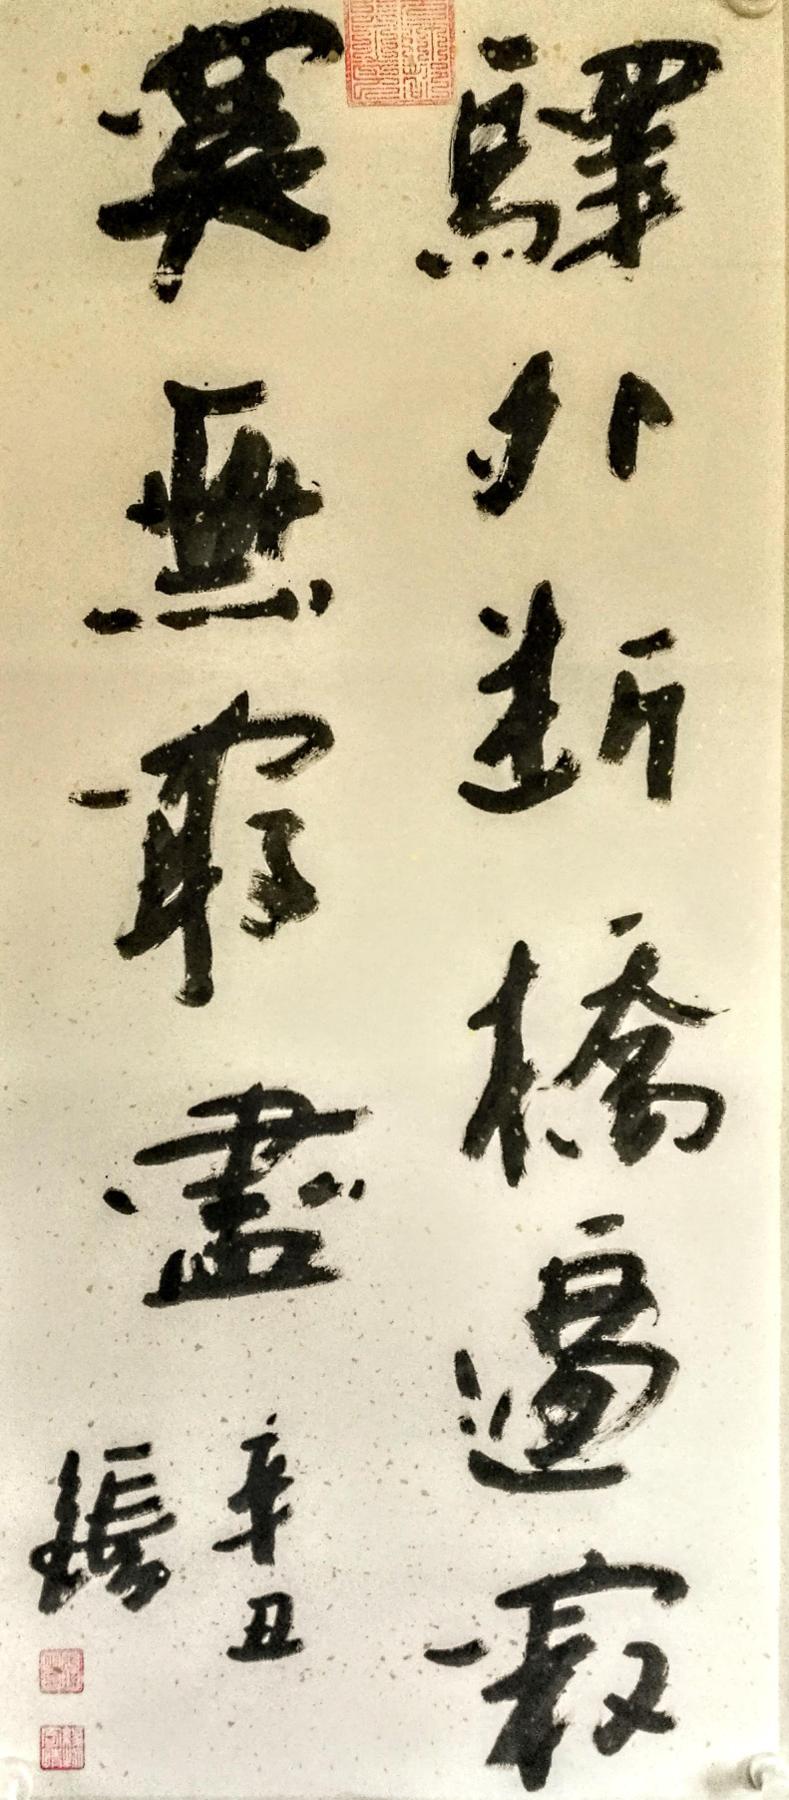 驛外斷橋邊寂
寞無窮盡
辛丑